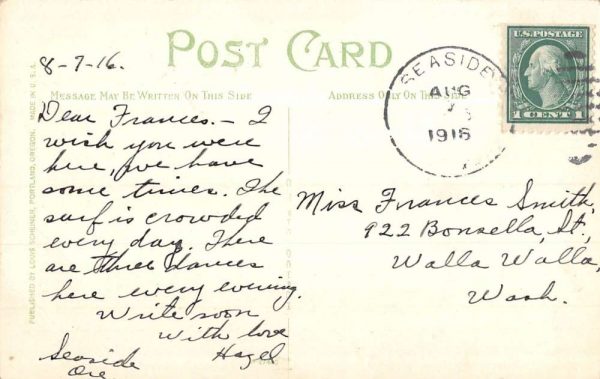 8-7-16.
POST CARD
MESSAGE MAY BE WRITTEN ON THIS SIDE
ADDRESS ONLY ON THIS SIDE
Dear Frances. - I
wish you were
here, we have
some times. The
surf is crowded
every day. There
are three dances
here every evening.
Write soon
With love
Hazel
Seaside
Ore
SEASIDE
AUG
1916
U.S. POSTAGE
1 CENT 1
Miss Frances Smith,
922 Bonsella, St.,
Walla Walla,
Wash.
PUBLISHED BY LOUIS SCHEINER, PORTLAND, OREGON.
MADE IN U.S.A.